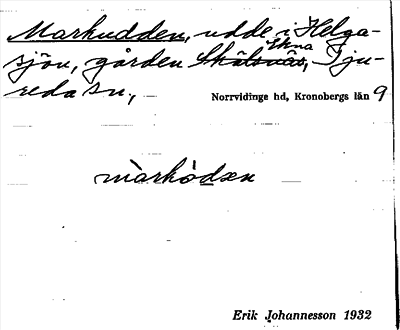 Markudden, udde i Helga-
sjön, gården Skälsnäs, Ekna Tju-
reda sn.,
Norrvidinge hd, Kronobergs län 9
màrkòdæn
Erik Johannesson 1932